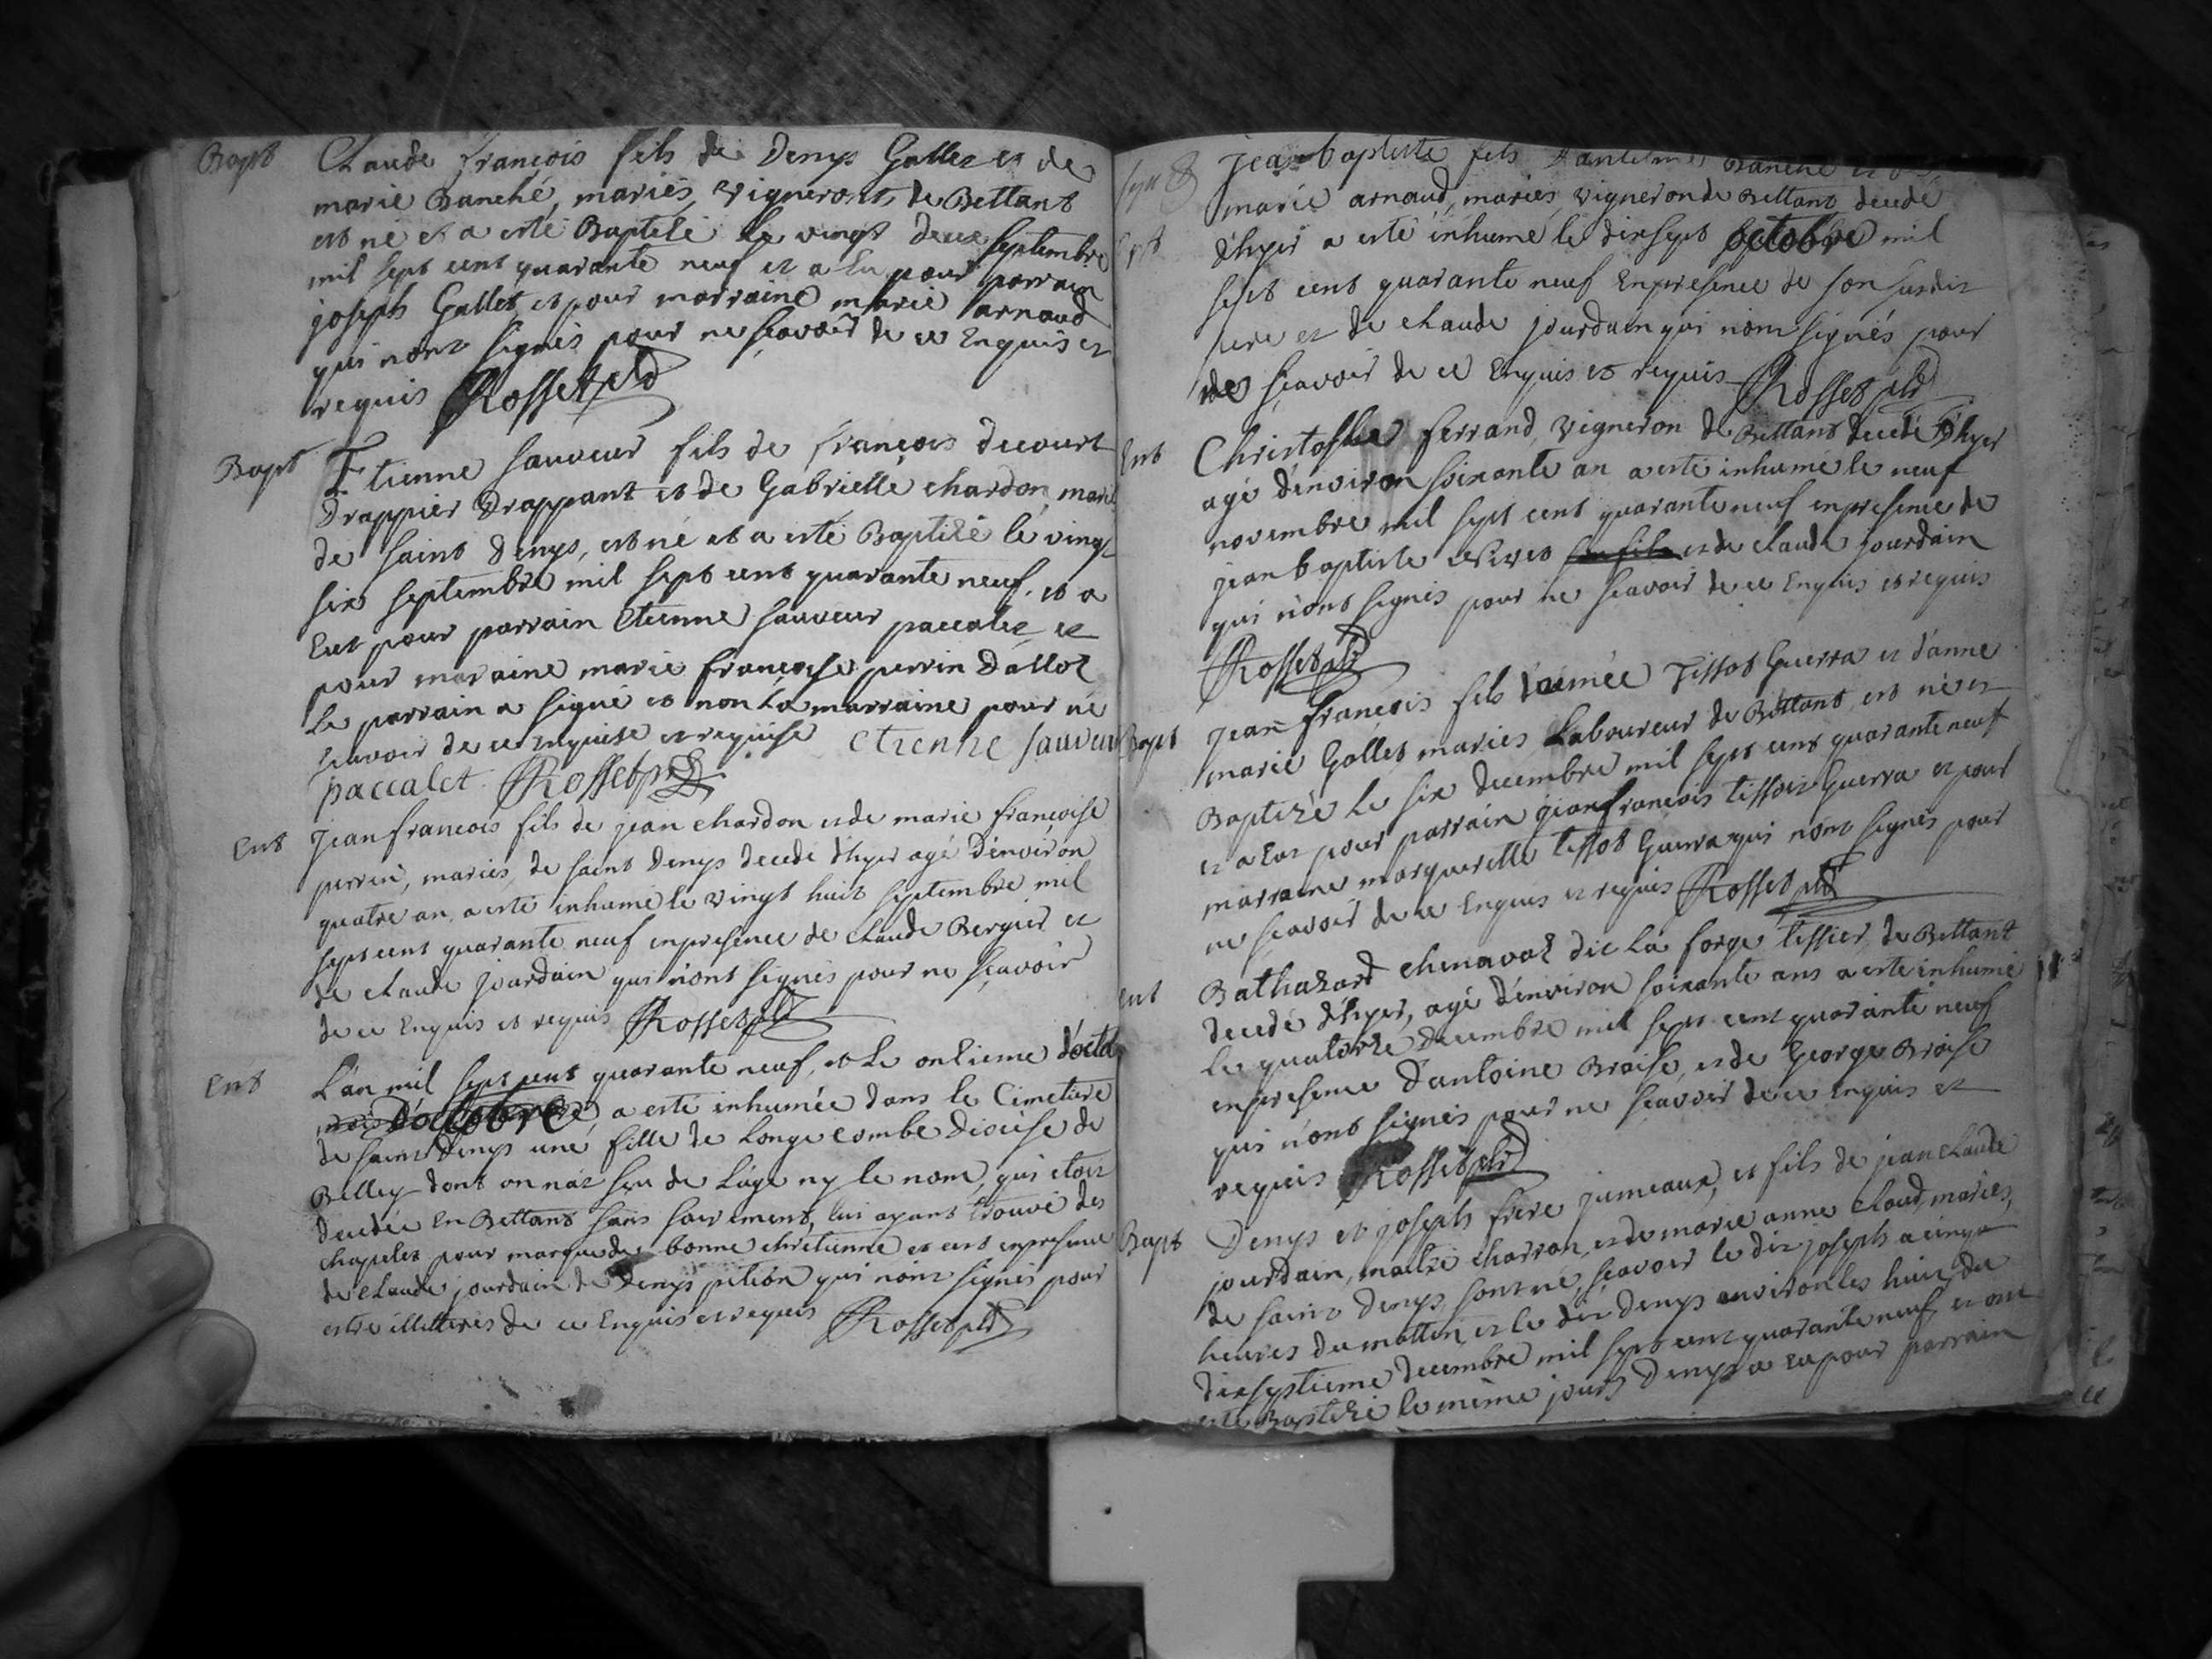 Bapt Claude françois fils de Denys Gallet et de
marie Banché, mariés, vignerons, de Bettant
est né et a esté Baptisé le vingt deux septembre
mil sept cent quarante neuf et a Eu pour parrain
joseph Gallet et pour marraine marie arnaud
qui nont signés pour ne sçavoir de ce Enquis et
requis Rosset
Bapt Etienne sauveur fils de françois decourt
Drappier Drappant et de Gabrielle chardon mariés
de saint Denys, est né et a esté Baptizé le vingt
six septembre mil sept cent quarante neuf, et a
Eut pour parrain Etienne sauveur paccalet et
pour maraine marie françoise perrin Dallot
Le parrain a signé et non La marraine pour ne
sçavoir de ce enquise et requise etienne sauveur
paccalet Rosset
Ent Jean francois fils de jean chardon et de marie françoise
perrin, mariés, de saint Denys decedé d'hyer agé d'environ
quatre an, a esté inhumé le vingt huit septembre mil
sept cent quarante neuf en presence de claude Bergier et
de claude Jourdain qui n'ont signés pour ne sçavoir
de ce Enquis et requis Rosset
Ent L'an mil sept cent quarante neuf, et Le onzieme d'octo
D'octobre a esté inhumée dans le Cimetiere
de saint Denys une fille de Longecombe Diocese de
Belley dont on n'at sçu de L'age ny le nom, qui etoit
decedée En Bettant sans sacrement, lui ayant trouvé des
chapelet pour marque de bonne chretienne et cest en presence
de claude jourdain de Denys pition qui n'ont signés pour
estre illitterés de ce Enquis et requis Rosset
jean baptiste fils d'antelme Banché et de
marie arnaud, mariés, vigneron de Bettant decedé
d'hyer a esté inhumé le dix sept octobre mil
sept cent quarante neuf En presence de son susdit
pere et de claude jourdain qui n'ont signés pour
ne sçavoir de ce Enquis et requis Rosset
Ent Christophe ferrand, vigneron de Bettant decedé d'hyer
agé d'environ soixante an a esté inhumé le neuf
novembre mil sept cent quarante neuf en presence de
jean baptiste son fils et de claude jourdain
qui n'ont signés pour ne scavoir de ce Enquis et requis
Rosset
Bapt Jean françois fils d'aimée Tissot Guerra et d'anne
marie Gallet mariés Laboureur de Bettant, est né et
Baptizé Le six decembre mil sept cent quarante neuf
et a Eut pour parrain jean françois tissot Guerra et pour
marraine marguerite tissot Guerra qui n'ont signés pour
ne sçavoir de ce Enquis et requis Rosset
Ent Bathazard chenavaz dit La forge tissier, de Bettant
decedé d'hyer, agé d'environ soixante ans a esté inhumé
Le quatorze decembre mil sept cent quarante neuf
en presence d'antoine Braise, et de George Braise
qui n'ont signés pour ne sçavoir de ce Enquis et
requis Rosset
Bapt Denys et joseph frere jumeaux, et fils de jean claude
jourdain, maitre charron, et de marie anne claud, mariés,
de saint Denys, sont né, sçavoir le dit joseph a cinq
heures du mattin, et le dit Denys environ les huit, du
dix septieme decembre mil sept cent quarante neuf, et ont
esté Baptizé le même jour, Denys a eu pour parrain